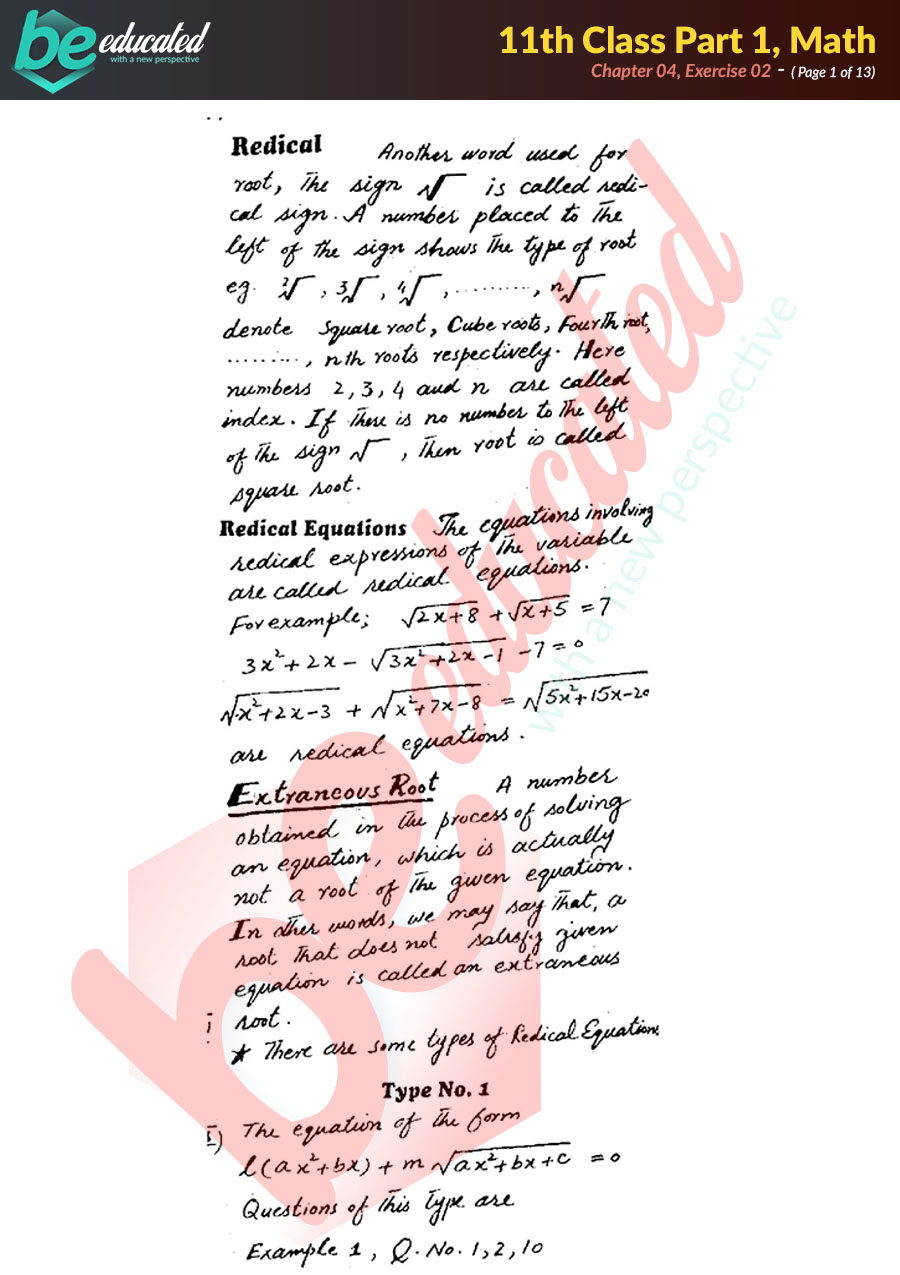 be educated
with a new perspective
11th Class Part 1, Math
Chapter 04, Exercise 02 - ( Page 1 of 13)
Redical Another word used for
root, The sign √ is called redi-
cal sign. A number placed to The
left of the sign shows The type of root
eg. ²√ , ³√ , ⁴√ , .........., ⁿ√
denote Square root, Cube roots, Fourth root,
.........., nth roots respectively. Here
numbers 2, 3, 4 and n are called
index. If There is no number to The left
of The sign √ , Then root is called
square root.
Redical Equations The equations involving
redical expressions of The variable
are called redical equations.
For example; √(2x+8) + √(x+5) = 7
3x² + 2x - √(3x²+2x-1) - 7 = 0
√(x²+2x-3) + √(x²+7x-8) = √(5x²+15x-20)
are redical equations.
Extraneous Root A number
obtained in the process of solving
an equation, which is actually
not a root of The given equation.
In other words, we may say That, a
root That does not satisfy given
equation is called an extraneous
root.
* There are some types of Redical Equations
Type No. 1
i) The equation of The form
l(ax²+bx) + m √(ax²+bx+c) = 0
Questions of This Type are
Example 1, Q. No. 1, 2, 10
be educated
with a new perspective